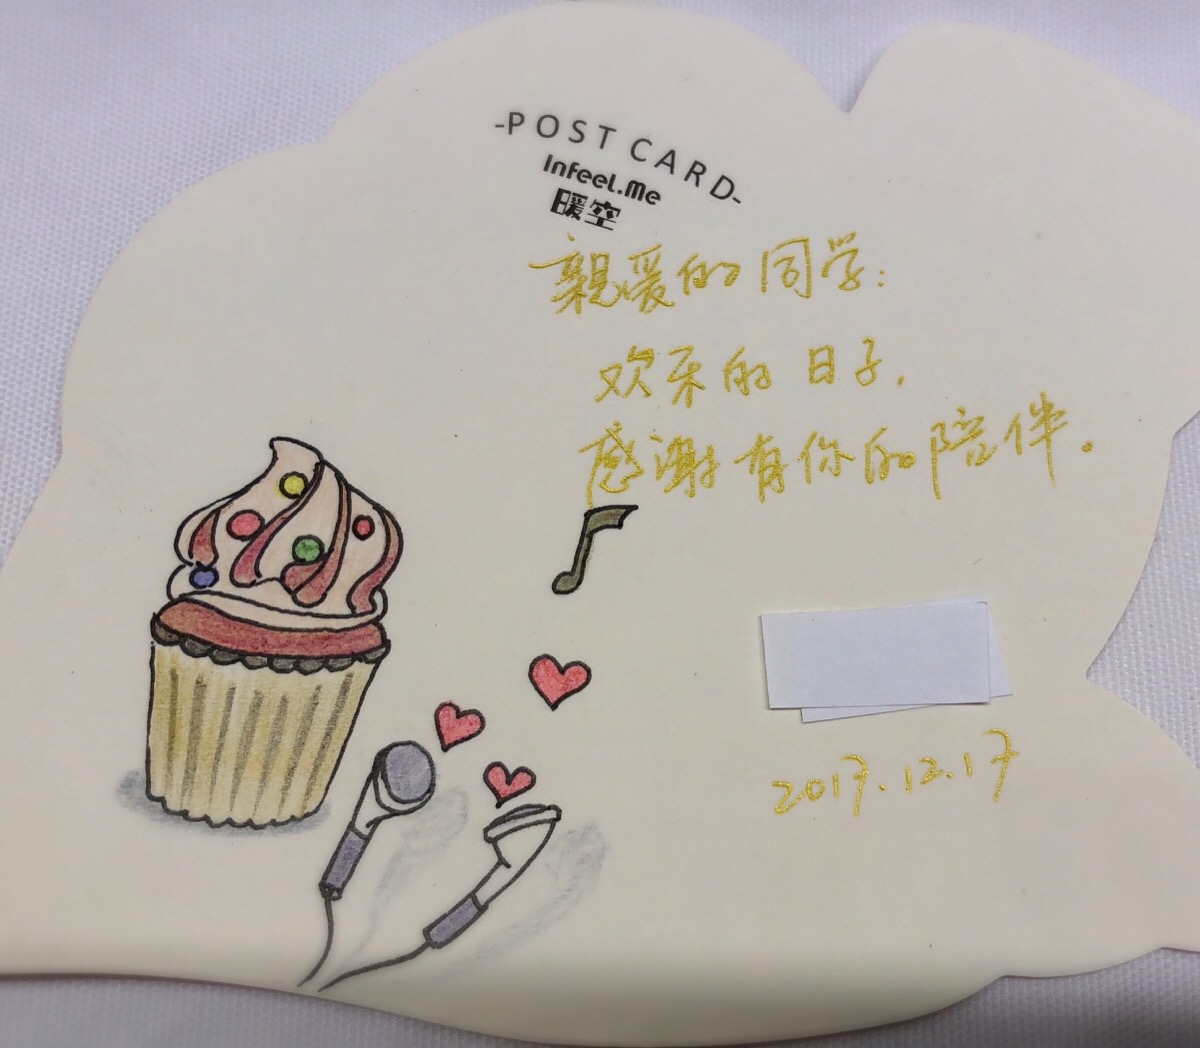 -POST CARD-
Infeel.Me
暖空
亲爱的同学:
欢乐的日子,
感谢有你的陪伴。
2017.12.17